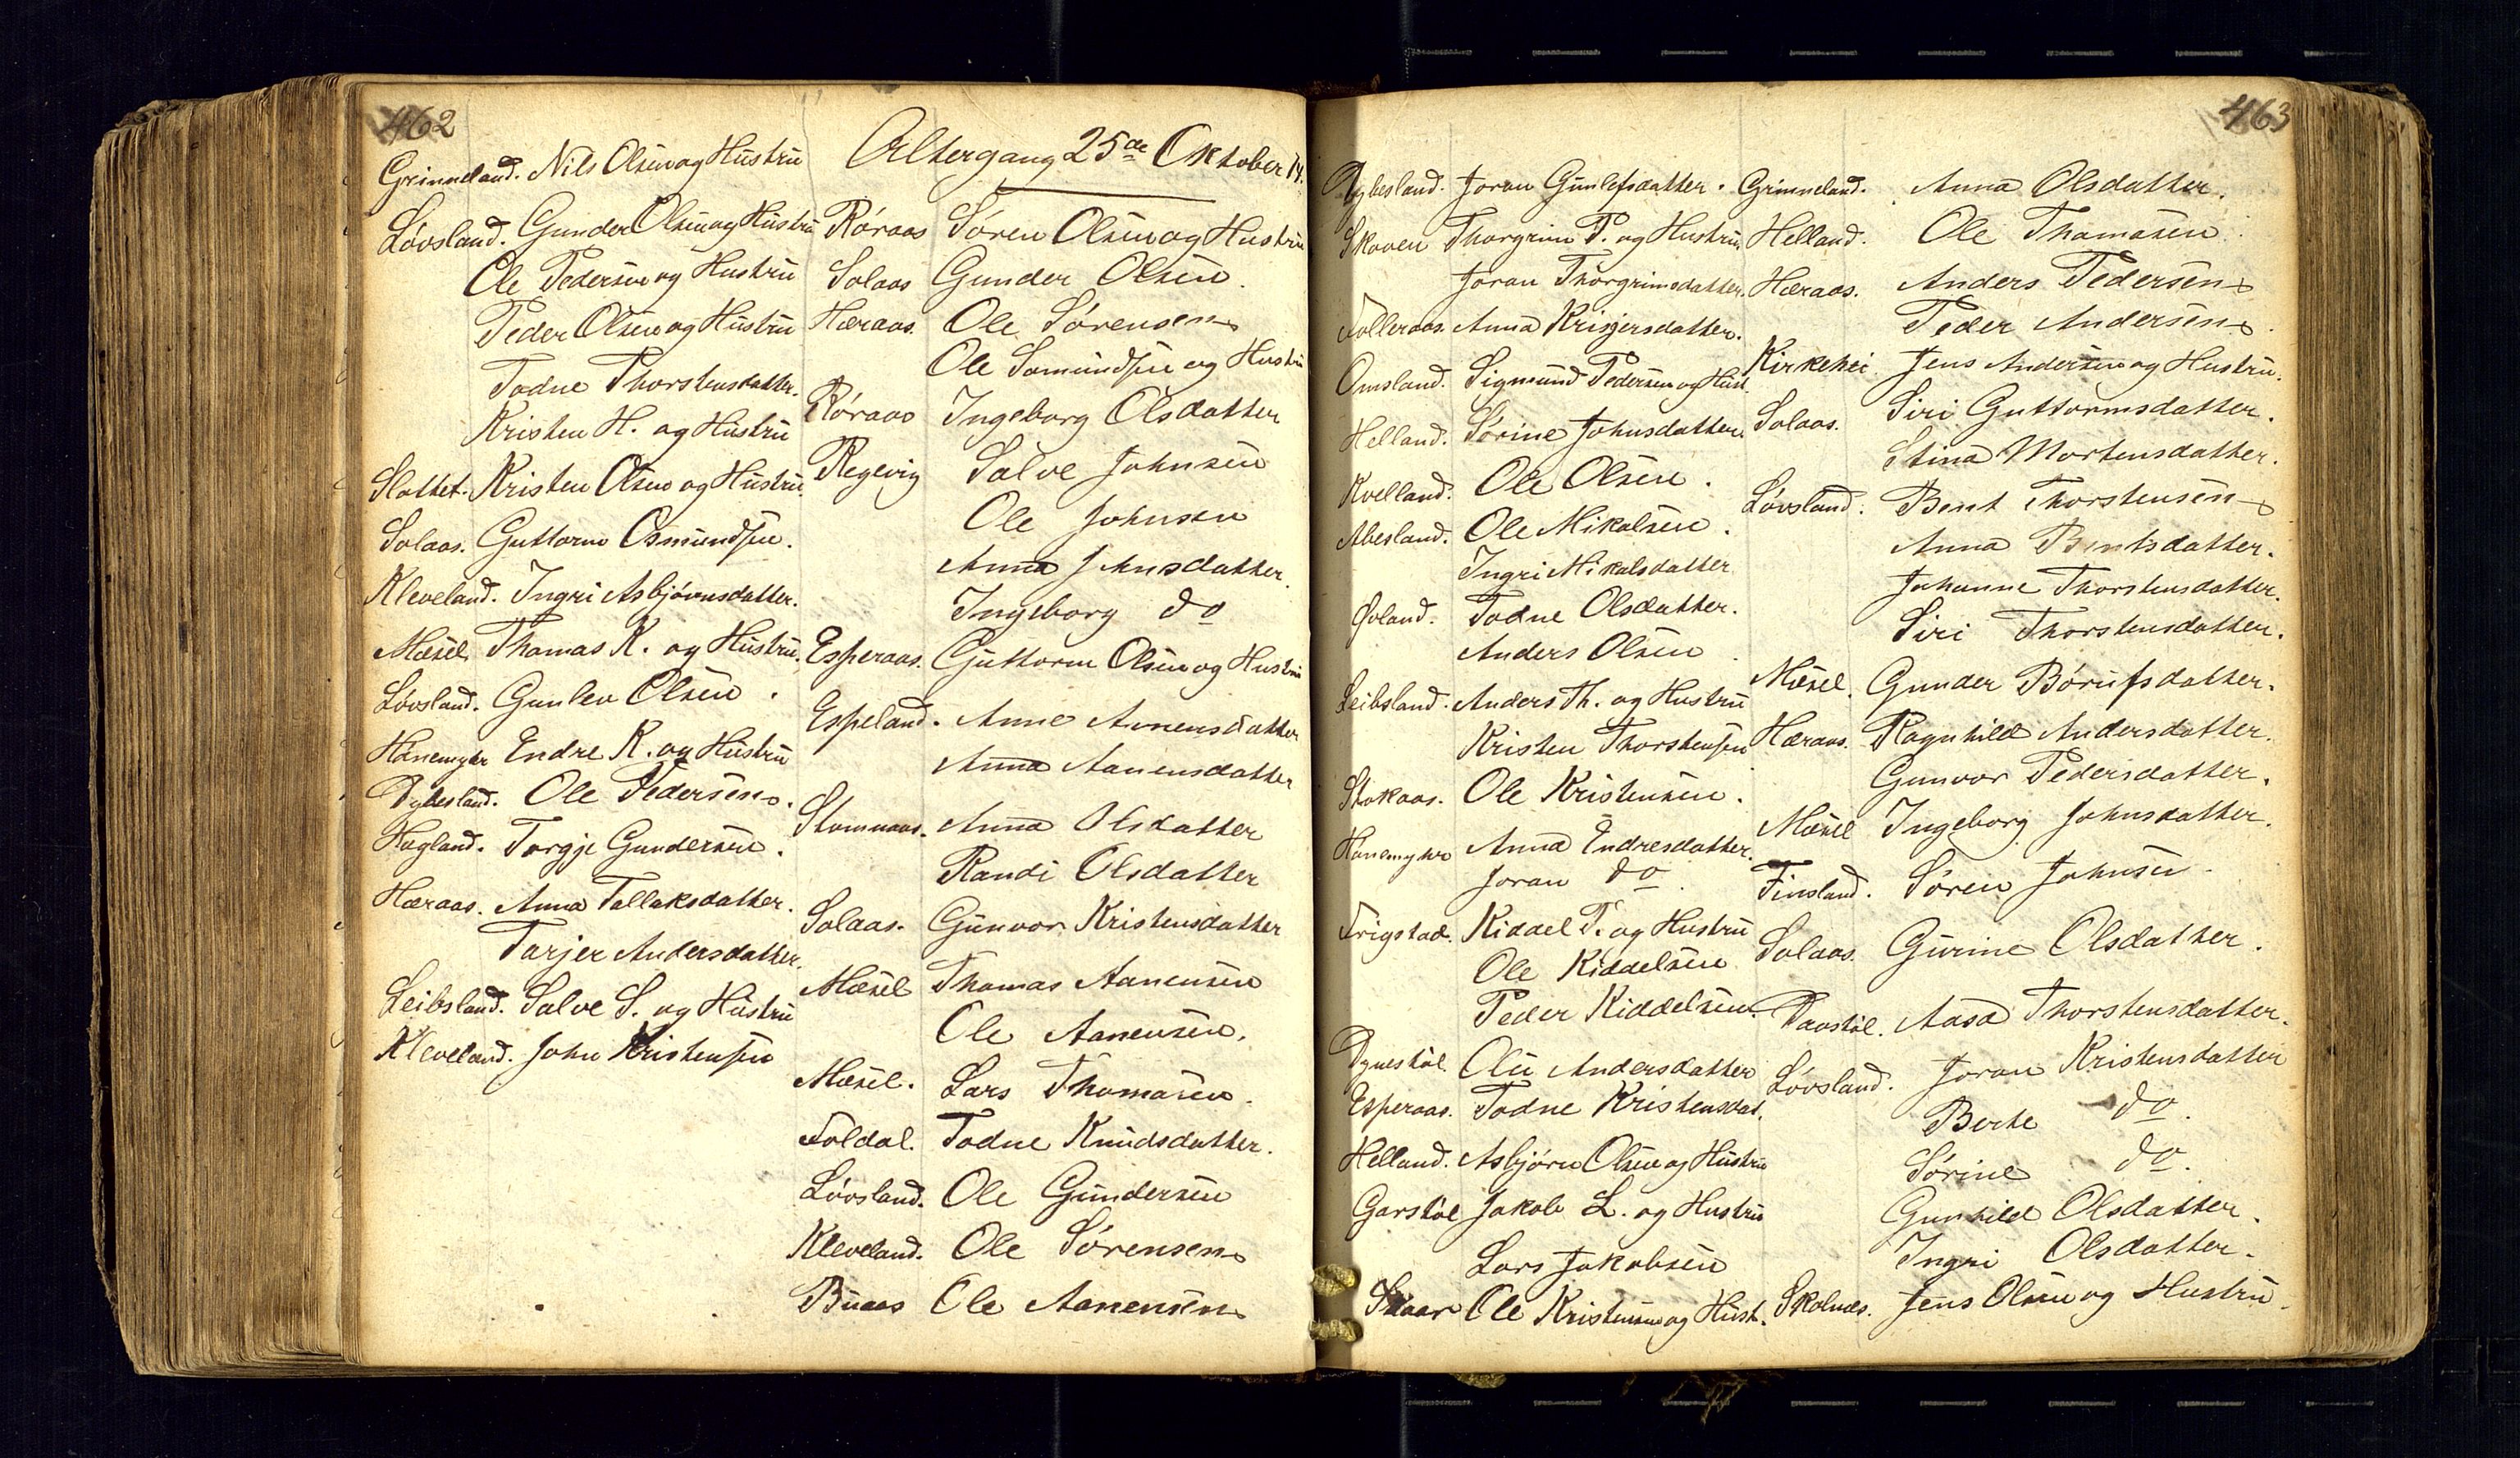 462
Grinneland. Nils Olsen og Hustru
Lóvsland. Gunder Olsen og Hustru
Ole Pedersen og Hustru
Peder Olsen og Hustru
Todne Thorstensdatter.
Kristen H. og Hustru
Slottet. Kristen Olsen og Hustru.
Solaas. Guttorm Osmundsen.
Kleveland. Ingri Asbjórnsdatter.
Mæsel Thomas K. og Hustru.
Lóvsland. Gunlev Olsen.
Hónemyhr Endre K. og Hustru
Dybesland. Ole Pedersen.
Hagland. Torgje Gundersen.
Hæraas. Anna Tallaksdatter.
Tarjer Andersdatter.
Leibsland. Salve S. og Hustru
Kleveland. John Kristensen
Altergang 25de Oktober 74.
Róraas Sóren Olsen og Hustru
Solaas Gunder Olsen.
Hæraas. Ole Sórensen
Ole Somundsen og Hustru
Róraas Ingeborg Olsdatter
Regevig Salve Johnsen
Ole Johnsen
Anna Johnsdatter.
Ingeborg do
Esperaas. Guttorm Olsen og Hustru
Espeland. Anne Aanensdatter
Anna Aanensdatter
Stomnaas. Anna Olsdatter
Randi Olsdatter
Solaas. Gunvor Kristensdatter
Mæsel Thomas Aanensen
Ole Aanensen.
Mæsel. Lars Thomasen.
Foldal. Todne Knudsdatter.
Lóvsland. Ole Gundersen
Kleveland. Ole Sórensen
Buaas Ole Aanensen
463
Dybesland. Joran Gunlefsdatter.
Skoven Thorgrim P. og Hustru
Joran Thorgrimsdatter.
Folleraas. Anna Krisjersdatter.
Omsland. Sigmund Pedersen og Hust.
Helland. Sórine Johnsdatter.
Kvelland. Ole Olsen.
Abesland. Ole Mikalsen.
Ingri Mikalsdatter
Todne Olsdatter.
Anders Olsen.
Leibsland. Anders Th. og Hustru
Kristen Thorstensen
Stokaas. Ole Kristensen.
Hónemyhr Anna Endresdatter.
Joran do.
Frigstad. Kiddel T. og Hustru
Ole Kiddelsen
Peder Kiddelsen.
Dynestól. Olu Andersdatter
Esperaas. Todne Kristensdat.
Helland. Asbjórn Olsen og Hustru
Garstól Jakob L. og Hustru
Lars Jakobsen
Skaar Ole Kristensen og Hust.
Grinneland. Anna Olsdatter.
Helland. Ole Thomasen.
Hæraas. Anders Pedersen
Peder Andersen.
Kirkehei Jens Andersen og Hustru.
Solaas. Siri Guttormsdatter.
Stina Mortensdatter.
Lóvsland. Bent Thorstensen
Anna Bentsdatter.
Johanne Thorstensdatter.
Siri Thorstensdatter.
Mæsel. Gunder Bórufsdatter.
Hæraas. Ragnhild Andersdatter.
Gunvor Pedersdatter.
Mæsel Ingeborg Johnsdatter.
Finsland. Sóren Johnsen.
Solaas. Gurine Olsdatter.
Aasa Thorstensdatter.
Lóvsland. Joran Kristensdatter
Berte do.
Sórine do.
Gunhild Olsdatter.
Ingri Olsdatter.
Skolnes. Jens Olsen og Hustru.